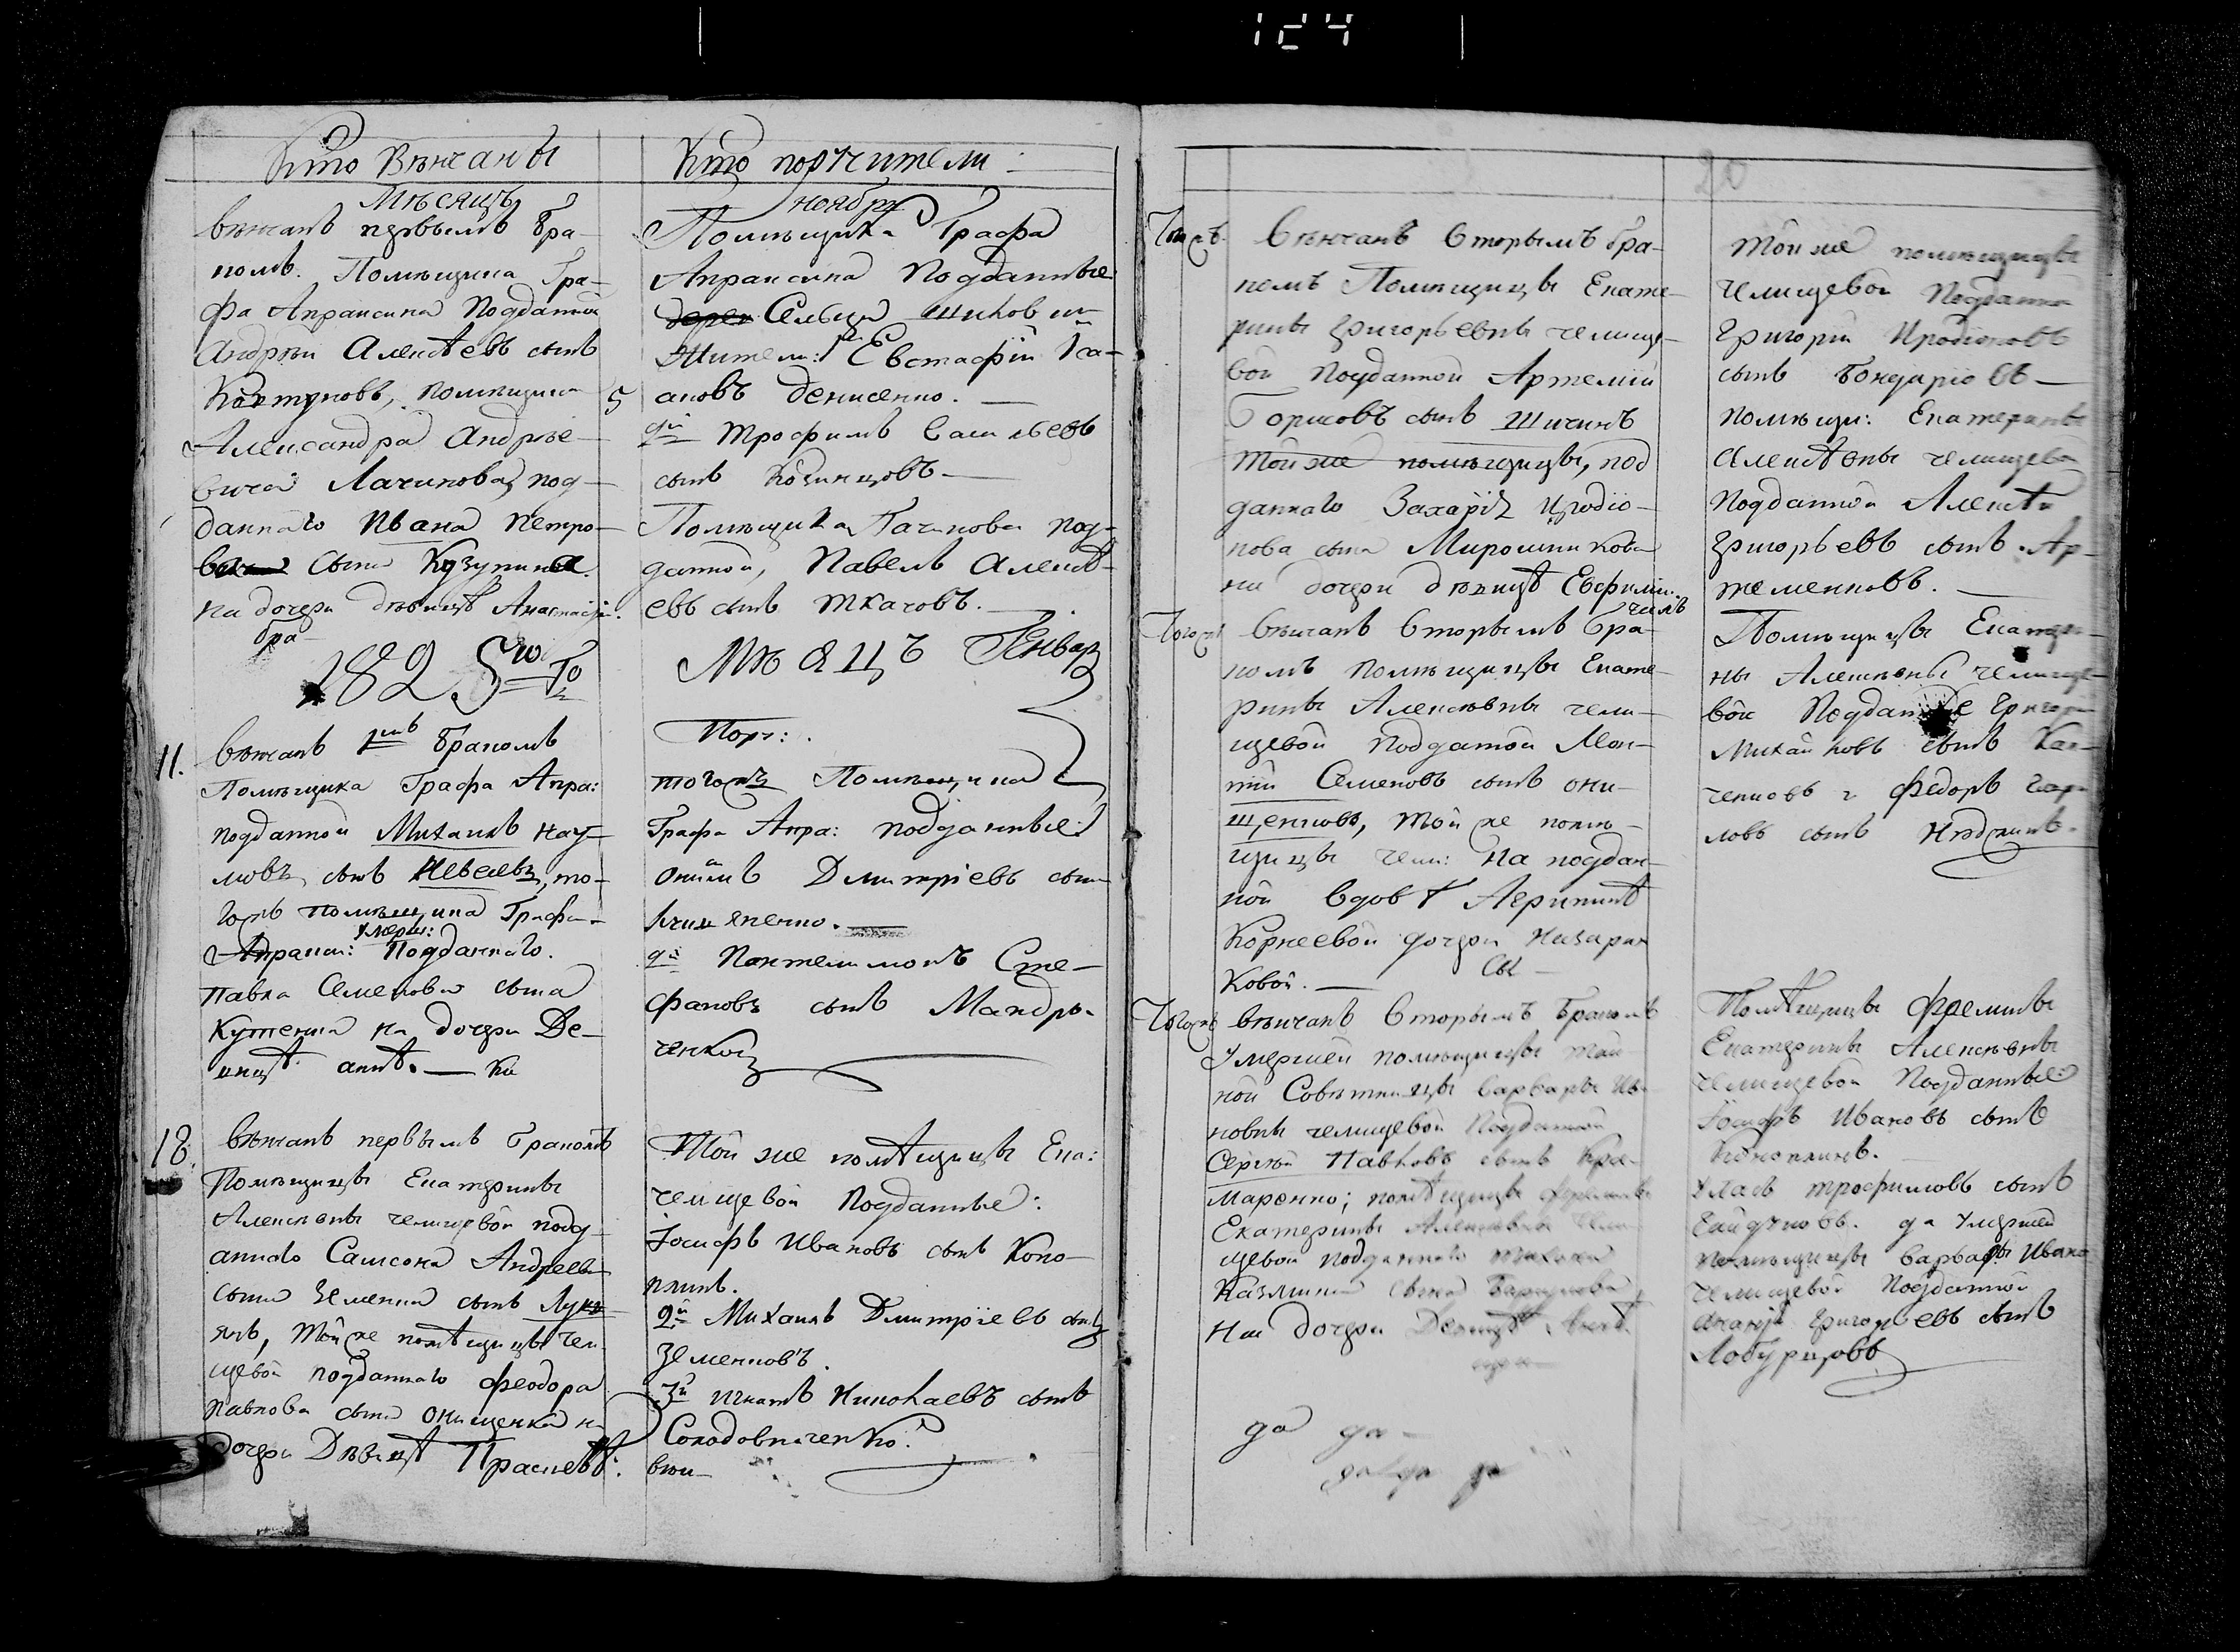 124
Кто Вѣнчаны
Мѣсяцъ
вѣнчанъ первымъ бра-
комъ. Помѣщика Гра-
фа Апраксина Подданной
Андрѣй Алексѣевъ сынъ
Ковтуновъ, помѣщика
Александра Андрѣе-
вича Лачинова под-
даннаго Ивана Петро-
сына
на дочери дѣвицѣ Анастасіи.
бра-
1825го Го
11. вѣнчанъ 1мъ бракомъ
Помѣщика Графа Апра:
подданной Михаилъ Нау-
мовъ сынъ Невеевъ, то-
гожъ помѣщика Графа
умерш:
Апракси: Подданнаго.
Павла Семенова сына
Кутенка на дочери Де-
вицѣ аннѣ. — Ка
18. вѣнчанъ первымъ бракомъ
Помѣщицы Екатерины
Алексѣевны челищевой подд
аннаго Самсона Андреева
сына Земенка сынъ Лукь
янъ, той же помѣщицы чел
щевой подданнаго Феодора
Павлова сына Онищенка на
дочери Дѣвицѣ Праскевѣ.
Кто поручители:
ноября
Помѣщика Графа
Апраксина Подданные
Сельца
жители: 1й Евстафій Іса-
5 аковъ Денисенко. —
2й Трофимъ Васильевъ
сынъ Козинцовъ —
Помѣщика Лачинова под-
данной, Павелъ Алексѣ-
евъ сынъ Ткачовъ. —
Мѣсяцъ Генварь
Пору:
тогожъ Помѣщика
Графа Апра: подданные:
Дмитріевъ сынъ
2й Пантелимонъ Сте-
фановъ сынъ Мандры-
ченко
Той же помѣщицы Ека:
челищевой Подданные:
Іосифъ Ивановъ сынъ Коно-
плинъ.
2й Михаилъ Дмитріевъ сынъ
Земенковъ.
3й игнатъ Николаевъ сынъ
Солодовниченко.
вѣн-
Тогожъ. Вѣнчанъ Вторымъ бра-
комъ Помѣщицы Екате-
рины Григорьевны челище-
вой Подданной Артемій
Борисовъ сынъ Шичинъ
той же помѣщицы, под
даннаго Захарія Иродіо-
нова сына Мирошникова
на дочери дѣвицѣ Евфиміи.
чанъ
Тогожъ вѣнчанъ Вторымъ бра-
комъ помѣщицы Екате-
рины Алексѣевны чели-
щевой Подданой Леон-
тій Семеновъ сынъ они-
щенковъ, той же помѣ-
щицы чели: на поддан-
ной вдовѣ Агрипинѣ
Корнеевой дочери Назарен
ковой. — Сы-
Тогожъ вѣнчанъ Вторымъ бракомъ
Умершей помѣщицы тай-
ной Совѣтницы Варвары Ив-
новны челищевой Подданной
Сергѣй Павловъ сынъ Кра-
маренко; помѣщицы
Екатерины Алексѣевны Чели-
щевой подданнаго
сына
на дочери Девицѣ
да да —
да да да
20
Той же помѣщицы
челищевой Подданной
Григорій Иродіоновъ
сынъ Бондаріовъ —
помѣщи: Екатерины
Алексѣвны челищевой
Подданной Алексѣй
Григорьевъ сынъ Ар-
теменковъ. —
Помѣщицы Екатери-
ны Алексѣвны челище-
вой Подданые Григорій
Михайловъ сынъ
ченковъ 2 Федоръ Гаври
ловъ сынъ
Помѣщицы
Екатерины Алексѣевны
челищевой Подданные
Іосифъ Ивановъ сынъ
Коноплинъ.
Уласъ Трофимовъ сынъ
Гайдуковъ. да Умершей
Помѣщицы Варвары Ивано
челищевой Подданной
Ананій Григорьевъ сынъ